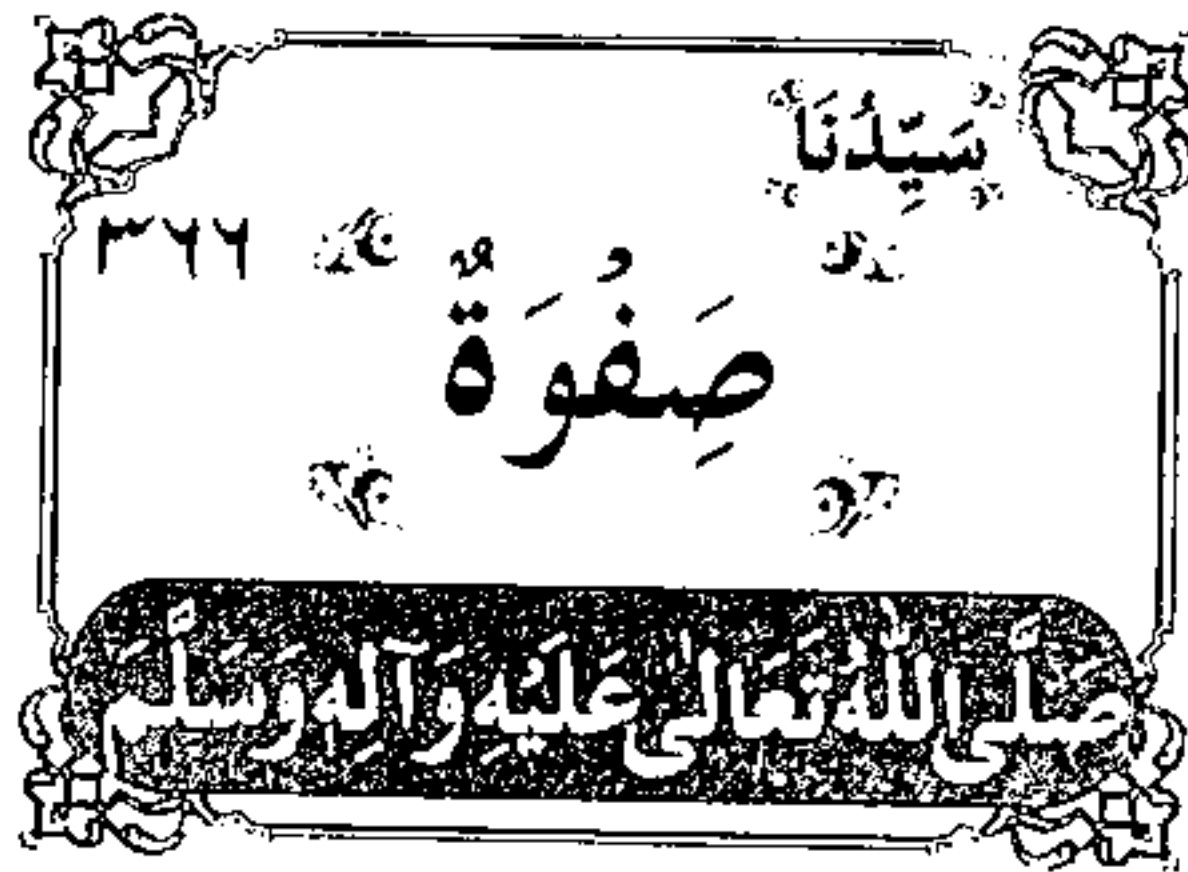 سَيِّدُنَا
٣٦٦
صَِفُْوَةٌ
صَلَّى اللّٰهُ تَعَالىٰ عَلَيْهِ وَآلِهِ وَسَلَّمَ